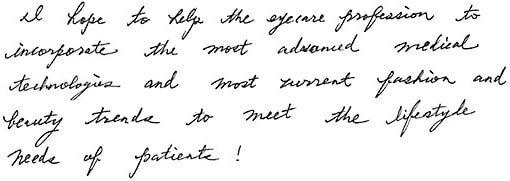 I hope to help the eyecare profession to
incorporate the most advanced medical
technologies and most current fashion and
beauty trends to meet the lifestyle
needs of patients!